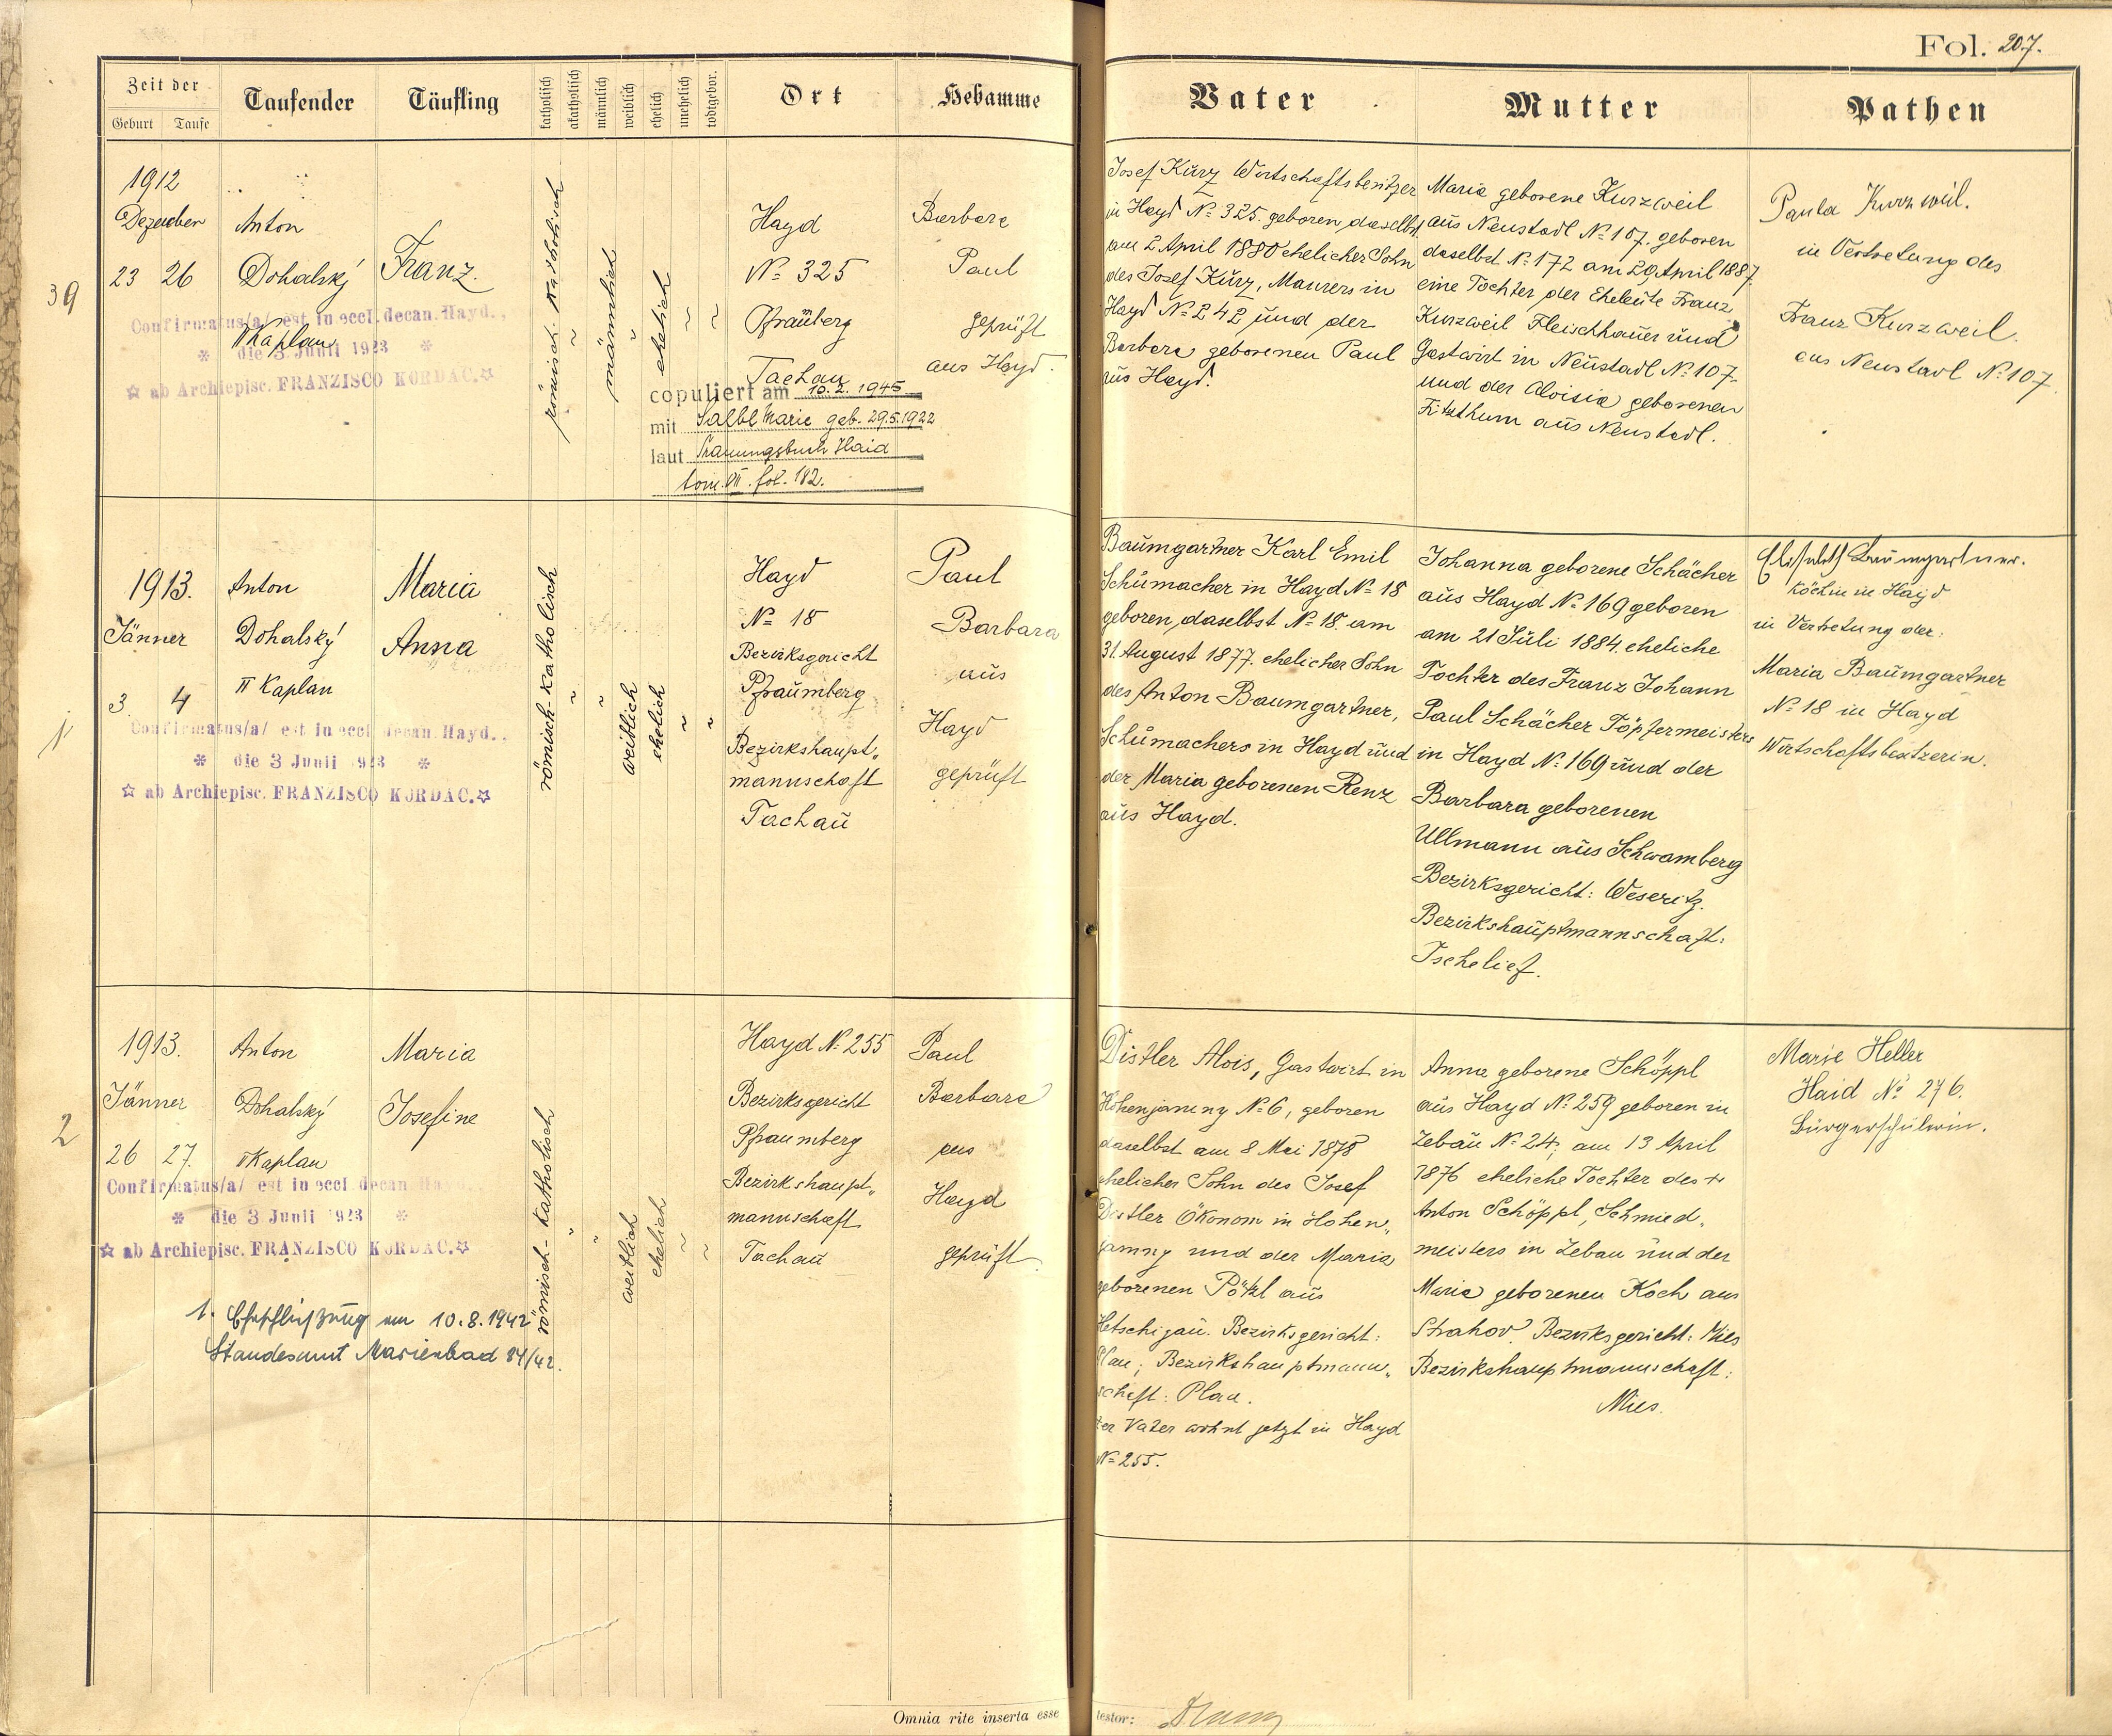 Fol. 207.
Zeit der
Geburt Taufe
Taufender
Täufling
katholisch
akatholisch
männlich
weiblich
ehelich
unehelich
todtgebor.
Ort
Hebamme
Vater
Mutter
Pathen
39
1912
Dezember
23 26
Anton
Dohalský
II Kaplan
Franz.
Confirmatus/a/ est in eccl. decan. Hayd.,
* die 3 Junii 1923 *
☆ ab Archiepisc. FRANZISCO KORDAC.☆
römisch-katholisch
~
männlich
~
ehelich
~
~
Hayd
No 325
Pfraüberg
Tachau
copuliert am 10.2.1945
mit Salbl Marie geb. 29.5.1922
laut Trauungsbuch Haid
tom. VII. fol. 182.
Barbara
Paul
geprüft
aus Hayd.
Josef Kürz Wirtschaftsbesitzer
in Hayd No 325. geboren daselbst
am 2 April 1880 ehelicher Sohn
des Josef Kürz, Maurers in
Hayd No 242 und der
Barbara geborenen Paul
aüs Hayd.
Maria geborene Kurzweil
aüs Neustadl No 107. geboren
daselbst No 172 am 29 April 1887.
eine Tochter der Eheleute Franz
Kurzweil Fleischhaüer ünd
Gastwirt in Neüstadl No 107.
und der Aloisia geborenen
Fitzthum aüs Neustadl.
Paula Kurzweil.
in Vertretung des
Franz Kurzweil.
aus Neustadl No 107.
1
1913.
Jänner
3. 4
Anton
Dohalský
II Kaplan
Maria
Anna
Confirmatus/a/ est in eccl. decan. Hayd.,
* die 3 Junii 1923 *
☆ ab Archiepisc. FRANZISCO KORDAC.☆
römisch-katholisch
~
~
weiblich
ehelich
~
~
Hayd
No 18
Bezirksgericht
Pfraümberg
Bezirkshaupt„
mannschaft
Tachaü
Paul
Barbara
aüs
Hayd
geprüft
Baümgartner Karl Emil
Schümacher in Hayd No 18
geboren daselbst No 18. am
31. August 1877. ehelicher Sohn
des Anton Baumgartner,
Schümachers in Hayd und
der Maria geborenen Renz
aüs Hayd.
Johanna geborene Schächer
aüs Hayd No 169 geboren
am 21 Jüli 1884. eheliche
Tochter des Franz Johann
Paul Schächer Töpfermeisters
in Hayd No 169 und der
Barbara geborenen
Ullmann aüs Schwamberg
Bezirksgericht: Weseritz.
Bezirkshaüptmannschaft:
Tschelief.
Elisabeth Baumgartner.
Köchin in Hayd
in Vertretung der:
Maria Baümgartner
No 18 in Hayd
Wirtschaftsbesitzerin.
2
1913.
Jänner
26 27.
Anton
Dohalský
II Kaplan
Maria
Josefine
Confirmatus/a/ est in eccl. decan. Hayd.
* die 3 Junii 1923 *
☆ ab Archiepisc. FRANZISCO KORDAC.☆
1. Eheschließung am 10.8.1942
Standesamt Marienbad 84/42.
römisch-katholisch
~
~
weiblich
ehelich
~
~
Hayd No 255
Bezirksgericht
Pfraumberg
Bezirkshaupt„
mannschaft
Tachaü
Paul
Barbara
aus
Hayd
geprüft
Distler Alois, Gastwirt in
Hohenjamny No 6, geboren
daselbst am 8 Mai 1878
ehelicher Sohn des Josef
Distler Ökonom in Hohen„
jamny und der Maria
geborenen Pötzl aüs
Hetschigaü. Bezirksgericht:
Plan; Bezirkshauptmann„
schaft: Plan.
der Vater wohnt jetzt in Hayd
No 255.
Anna geborene Schöppl
aüs Hayd No 259 geboren in
Zebaü No 24; am 13 April
1876 eheliche Tochter des +
Anton Schöppl, Schmied„
meisters in Zebau und der
Maria geborenen Koch aus
Strahov. Bezirksgericht: Mies
Bezirkshauptmannschaft:
Mies.
Marie Heller
Haid No 276.
Bürgerschülerin.
Omnia rite inserta esse testor: